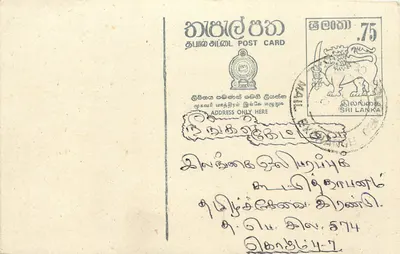 තැපැල් පත
தபால் அட்டை POST CARD
ශ්‍රී ලංකා .75
ලිපිනය පමණක් මෙහි ලියන්න
முகவரி மாத்திரம் இங்கே எழுதுக
ADDRESS ONLY HERE
இலங்கை
SRI LANKA
MAIL
இலங்கை ஒலிபரப்புக்
கூட்டுத்தாபனம்
தமிழ்ச்சேவை இரண்டு
த. பெ. இல. 574
கொழும்பு-7